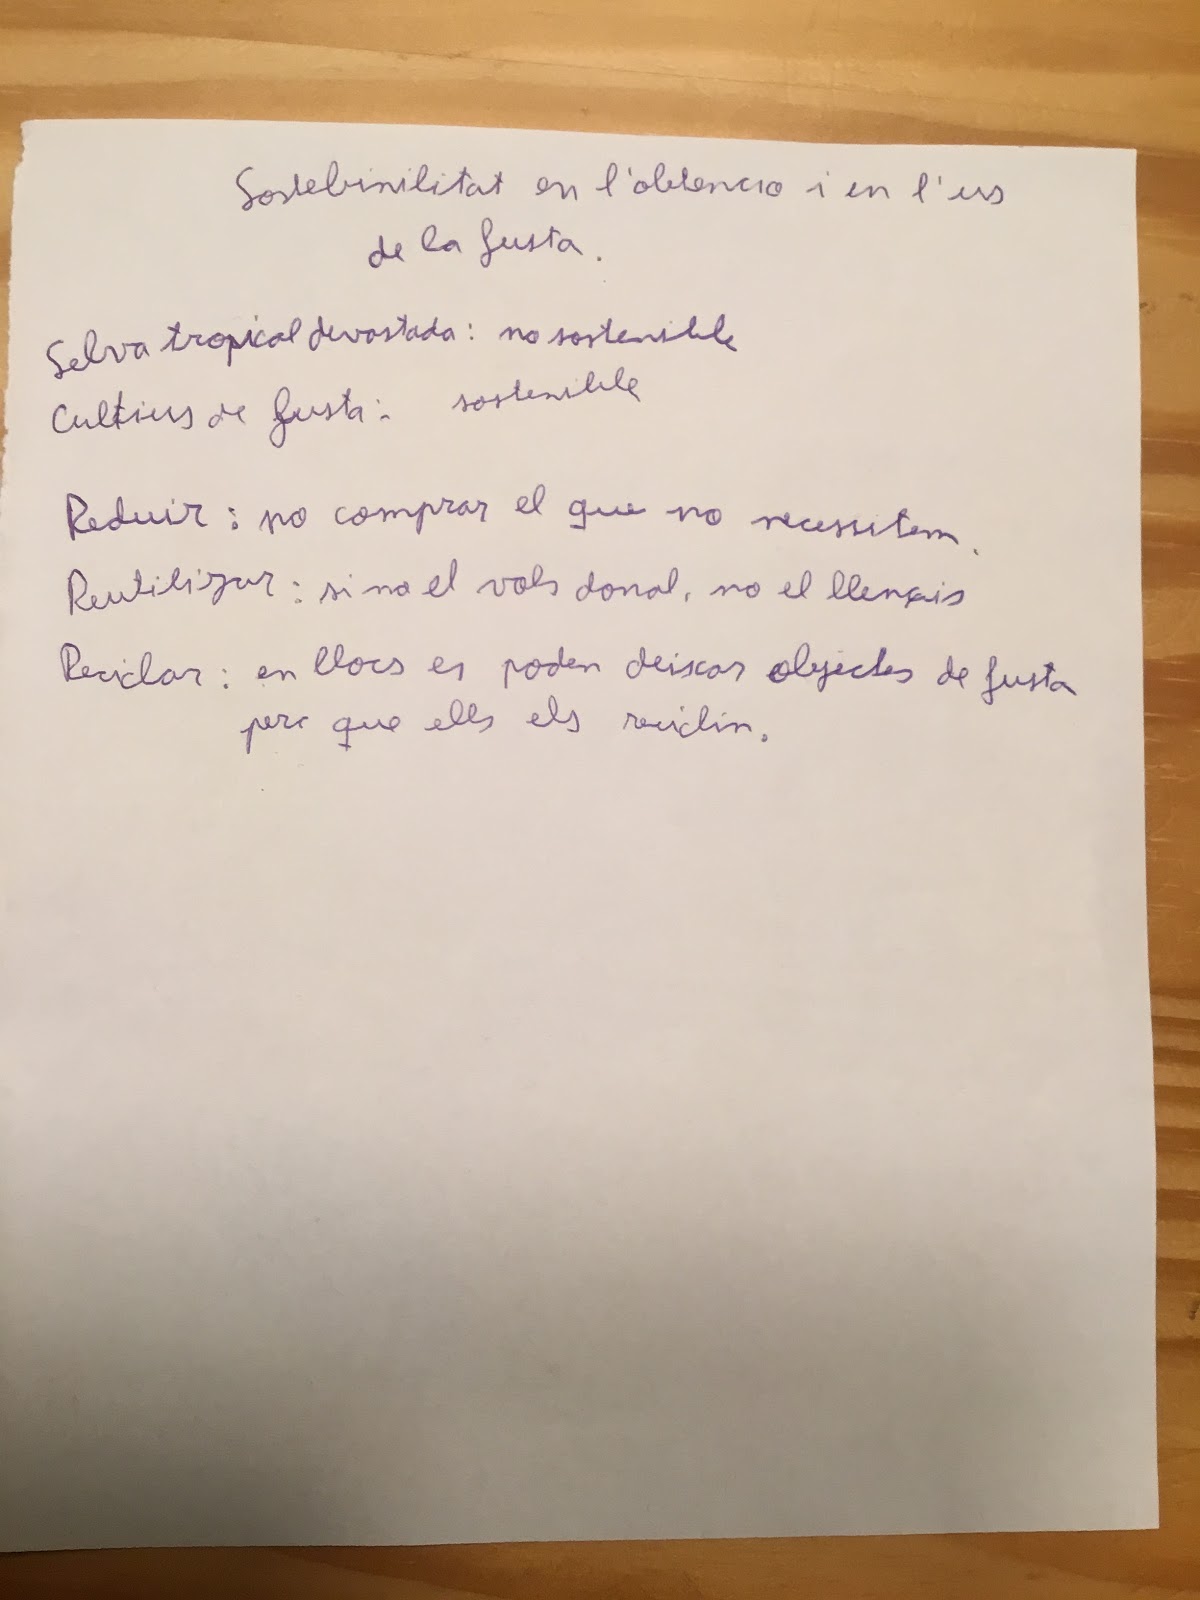 Sostebinilitat en l'obtencio i en l'us
de la fusta.
Selva tropical devastada: no sostenible
Cultius de fusta: sostenible
Reduir: no comprar el que no necessitem.
Reutilizar: si no el vols donal, no el llencis
Reciclar: en llocs es poden deixar objectes de fusta
per que ells els reciclin.